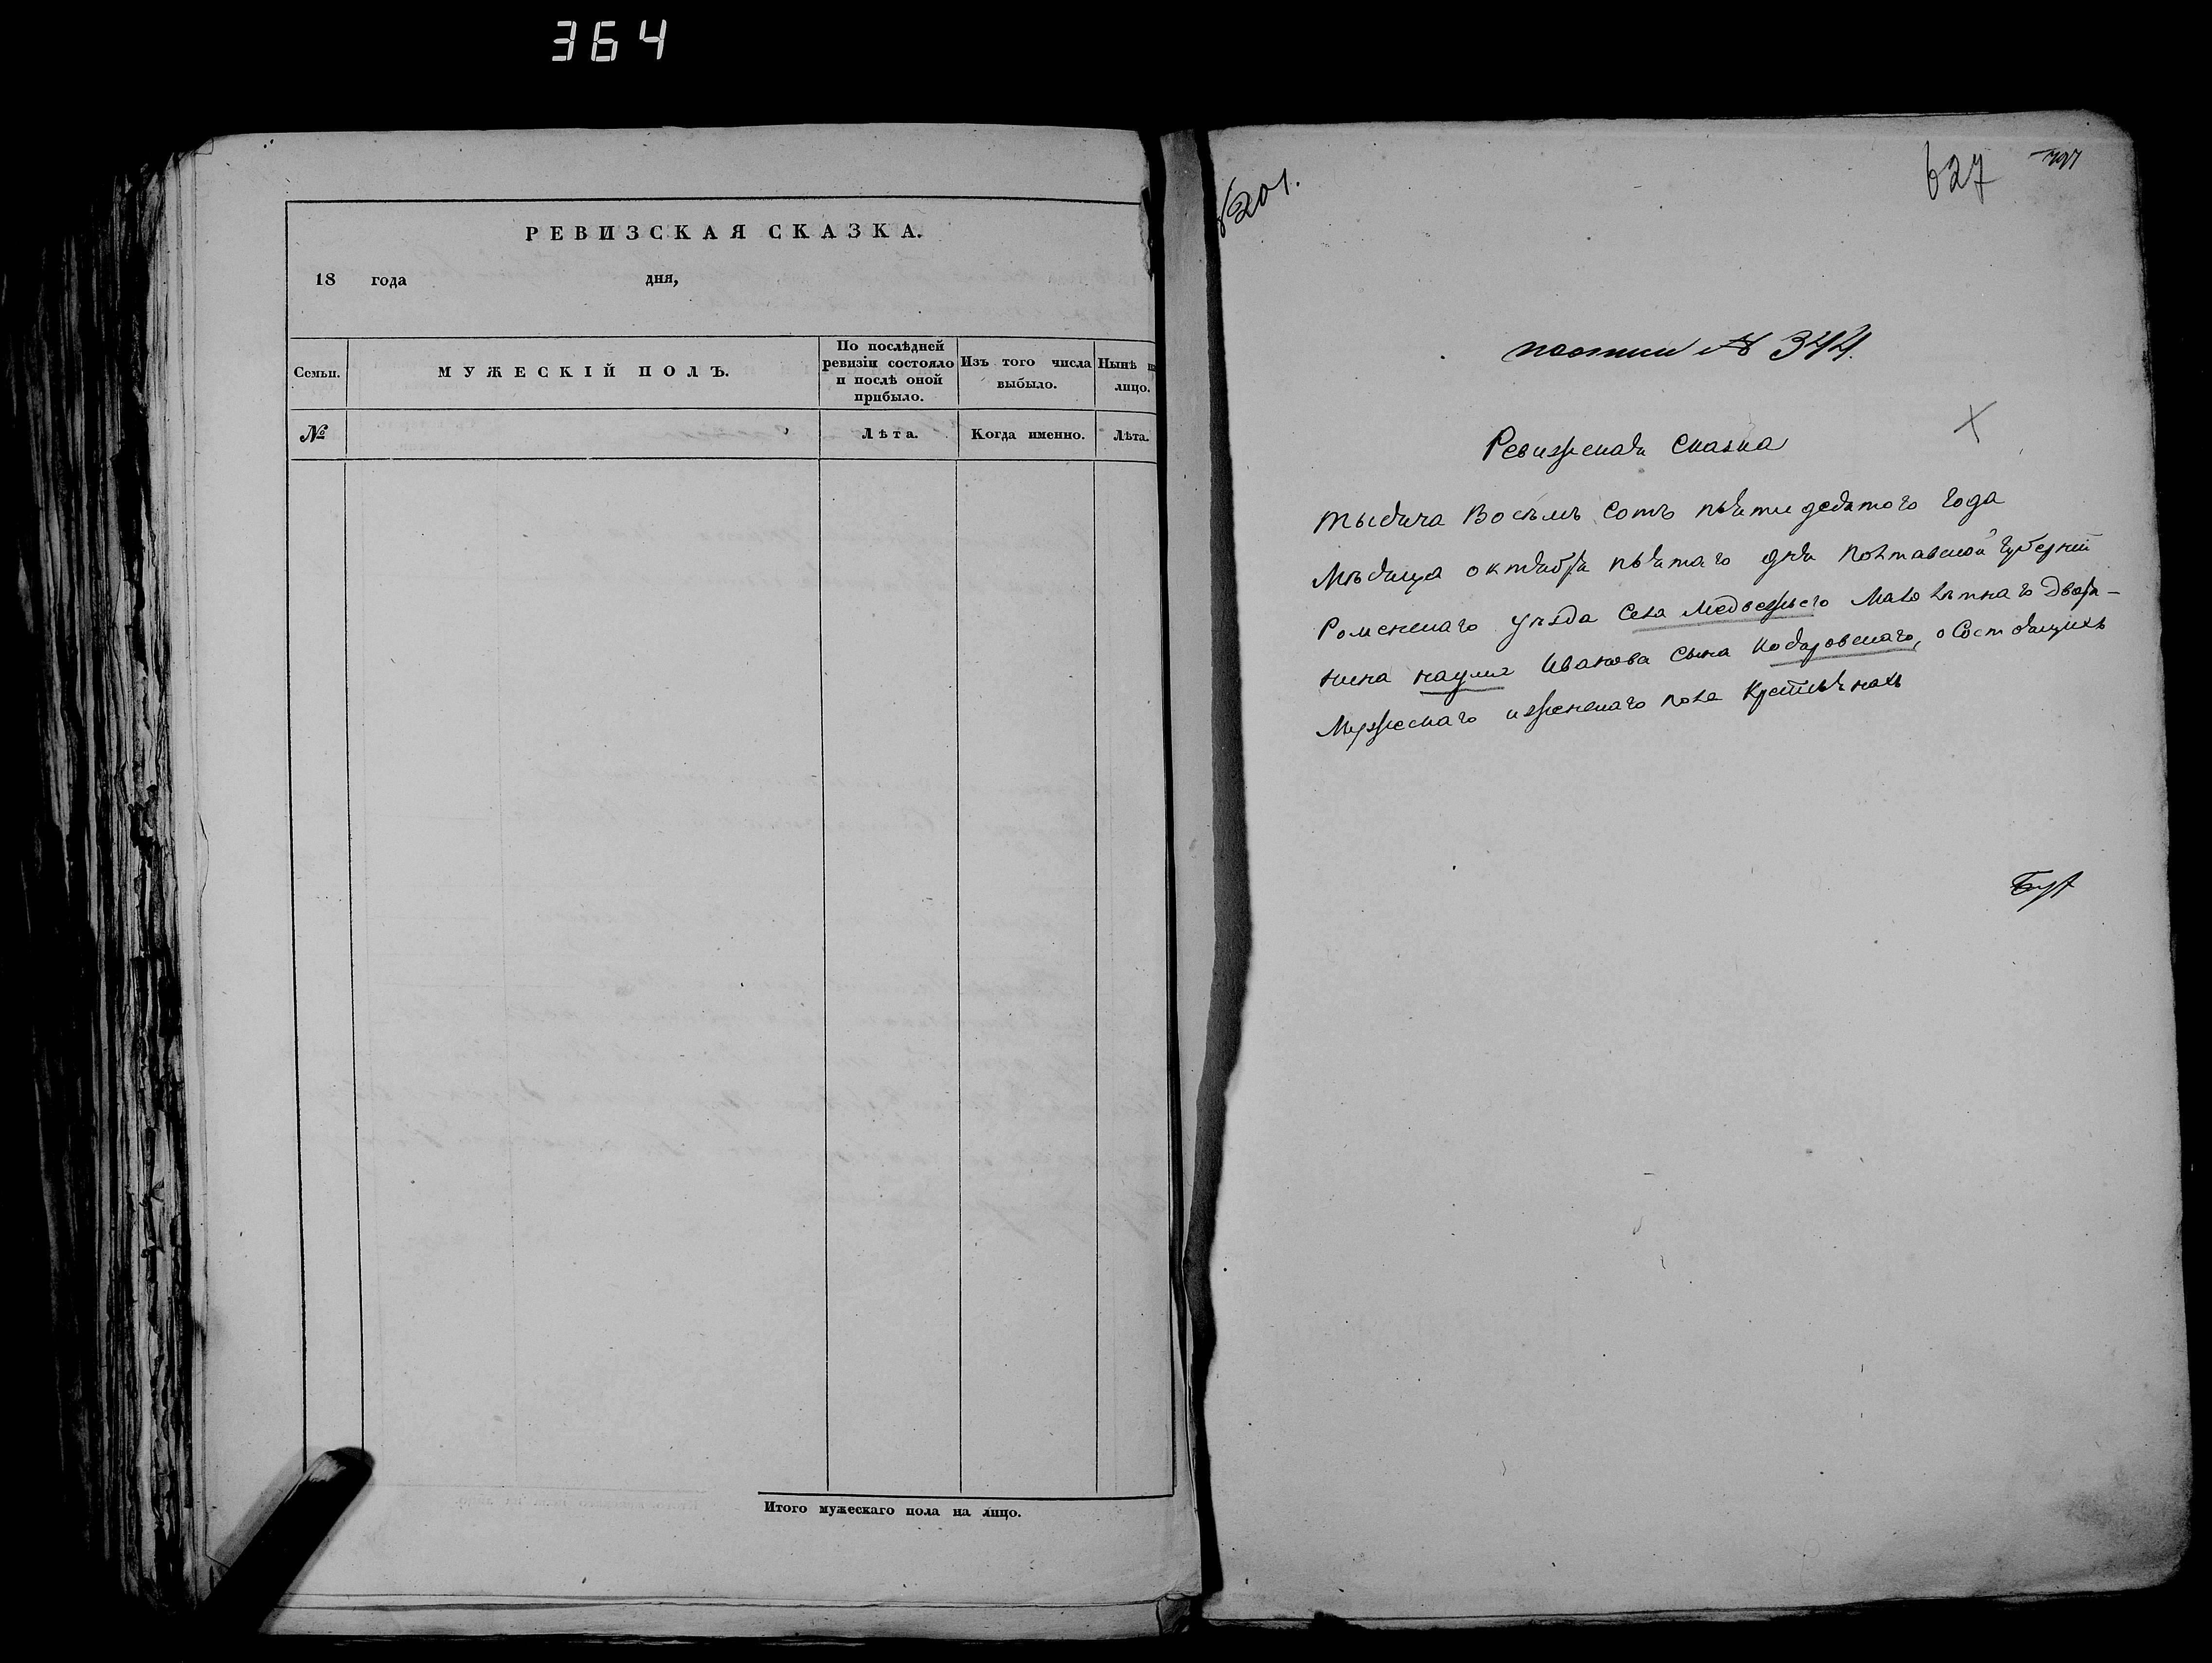 364
РЕВИЗСКАЯ СКАЗКА.
18 года дня,
Семьи.
МУЖЕСКІЙ ПОЛЪ.
По послѣдней
ревизіи состояло
и послѣ оной
прибыло.
Изъ того числа
выбыло.
Нынѣ
лицо.
№
Лѣта.
Когда именно.
Лѣта.
Итого мужескаго пола на лицо.
201.
627
по описи № 344.
Ревижская Сказка
тысяча Восѣмъ Сотъ пятидесятого года
Мѣсяца октября пятаго дня Полтавской губерніи
Роменскаго уѣзда Села Медвежьего Малолѣтнаго Дворя-
нина Иванова Сына о Состоящихъ
Мужескаго иженскаго пола Крстянахъ